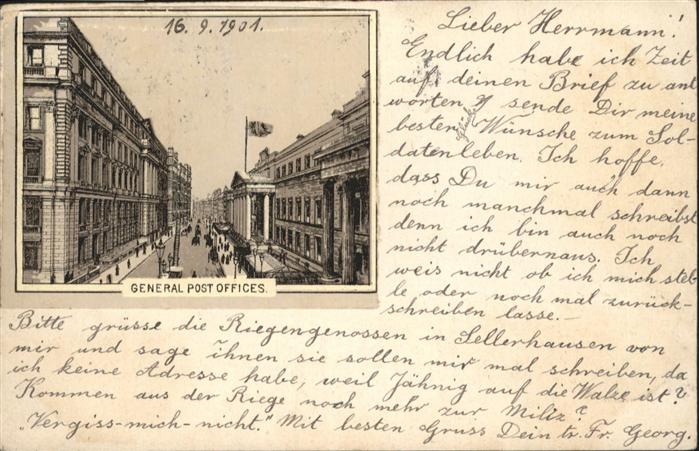 16. 9. 1901.
GENERAL POST OFFICES.
Lieber Herrmann!
Endlich habe ich Zeit
auf deinen Brief zu ant
worten & sende Dir meine
besten Glück Wünsche zum Sol-
datenleben. Ich hoffe,
dass Du mir auch dann
noch manchmal schreibst
denn ich bin auch noch
nicht drübernaus. Ich
weis nicht ob ich mich stel-
le oder noch mal zurück-
schreiben lasse.-
Bitte grüsse die Riegengenossen in Sellerhausen von
mir und sage ihnen sie sollen mir mal schreiben, da
ich keine Adresse habe, weil Jähnig auf die Walze ist?
Kommen aus der Riege noch mehr zur Miliz?
"Vergiss-mich-nicht." Mit besten Gruss Dein tr. Fr. Georg.